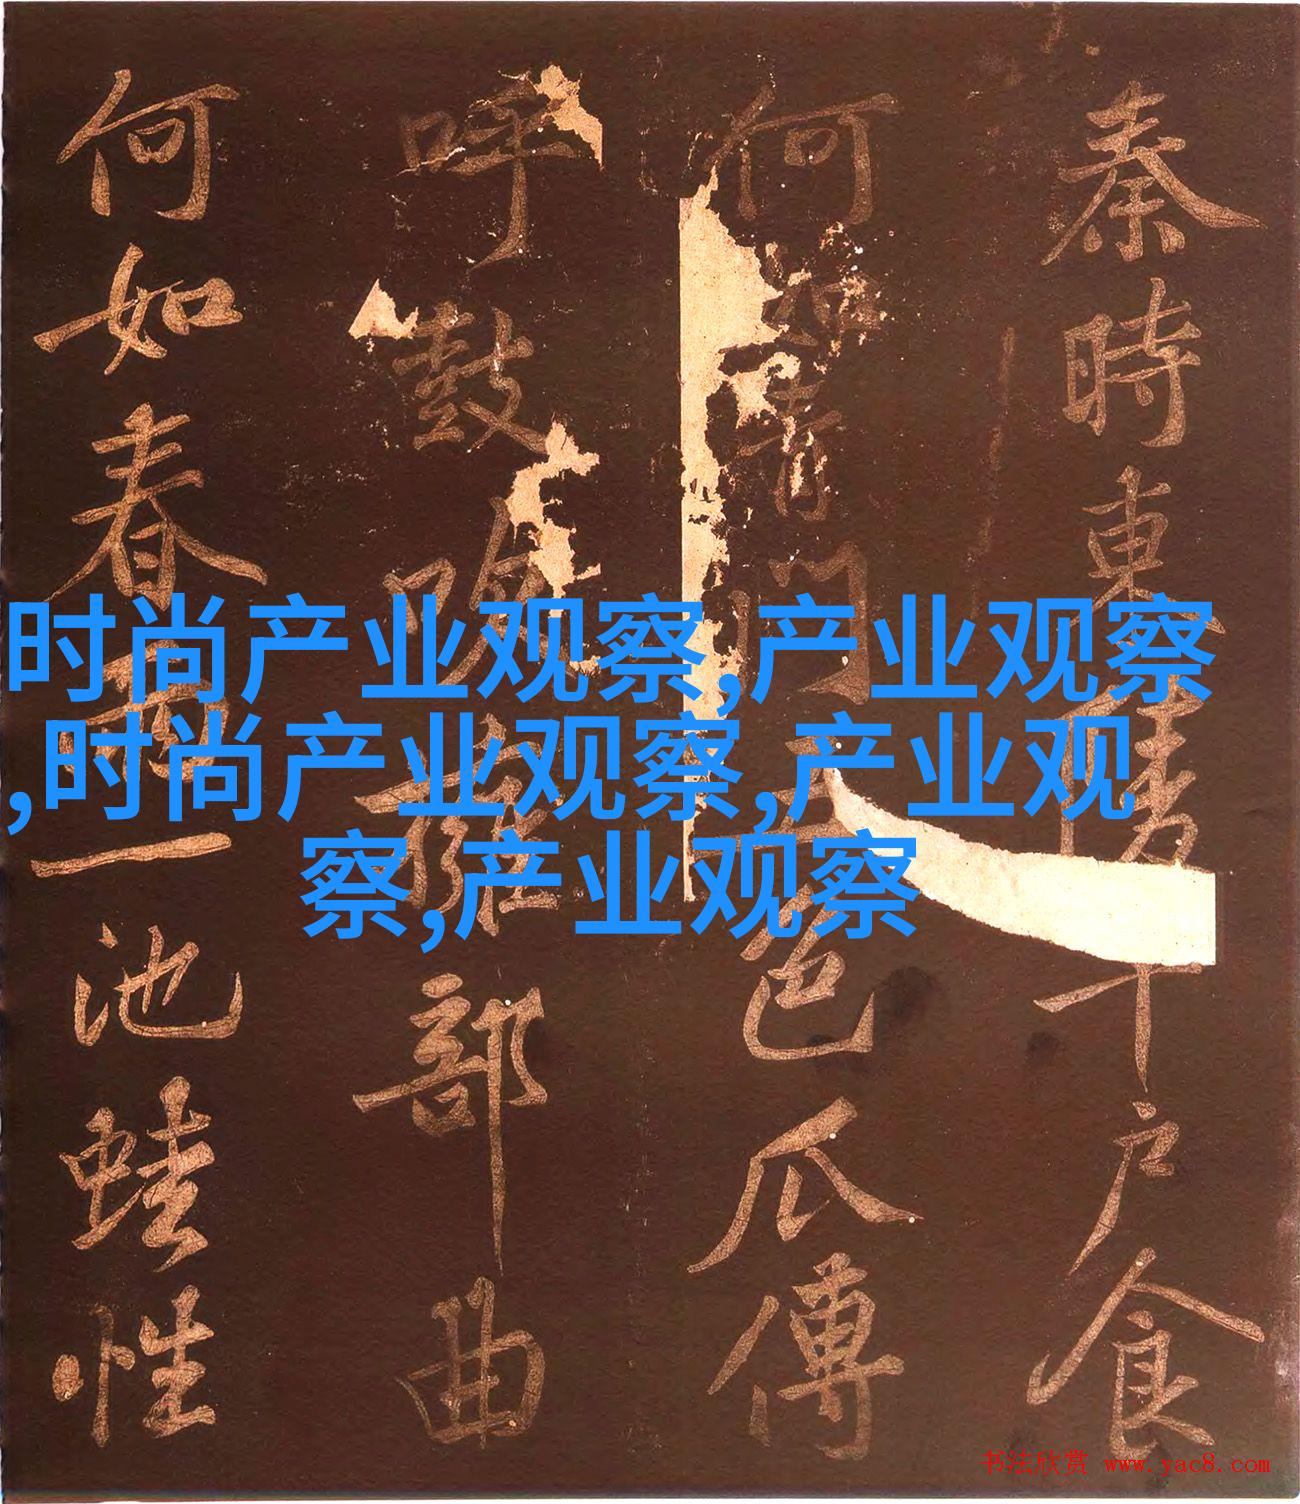 秦時東陵千戶食
何如青門五色瓜傳
呼鼓吹擁部曲
何如春雨一池蛙性
时尚产业观察,产业观察
,时尚产业观察,产业观
察,产业观察
书法欣赏 www.yac8.com